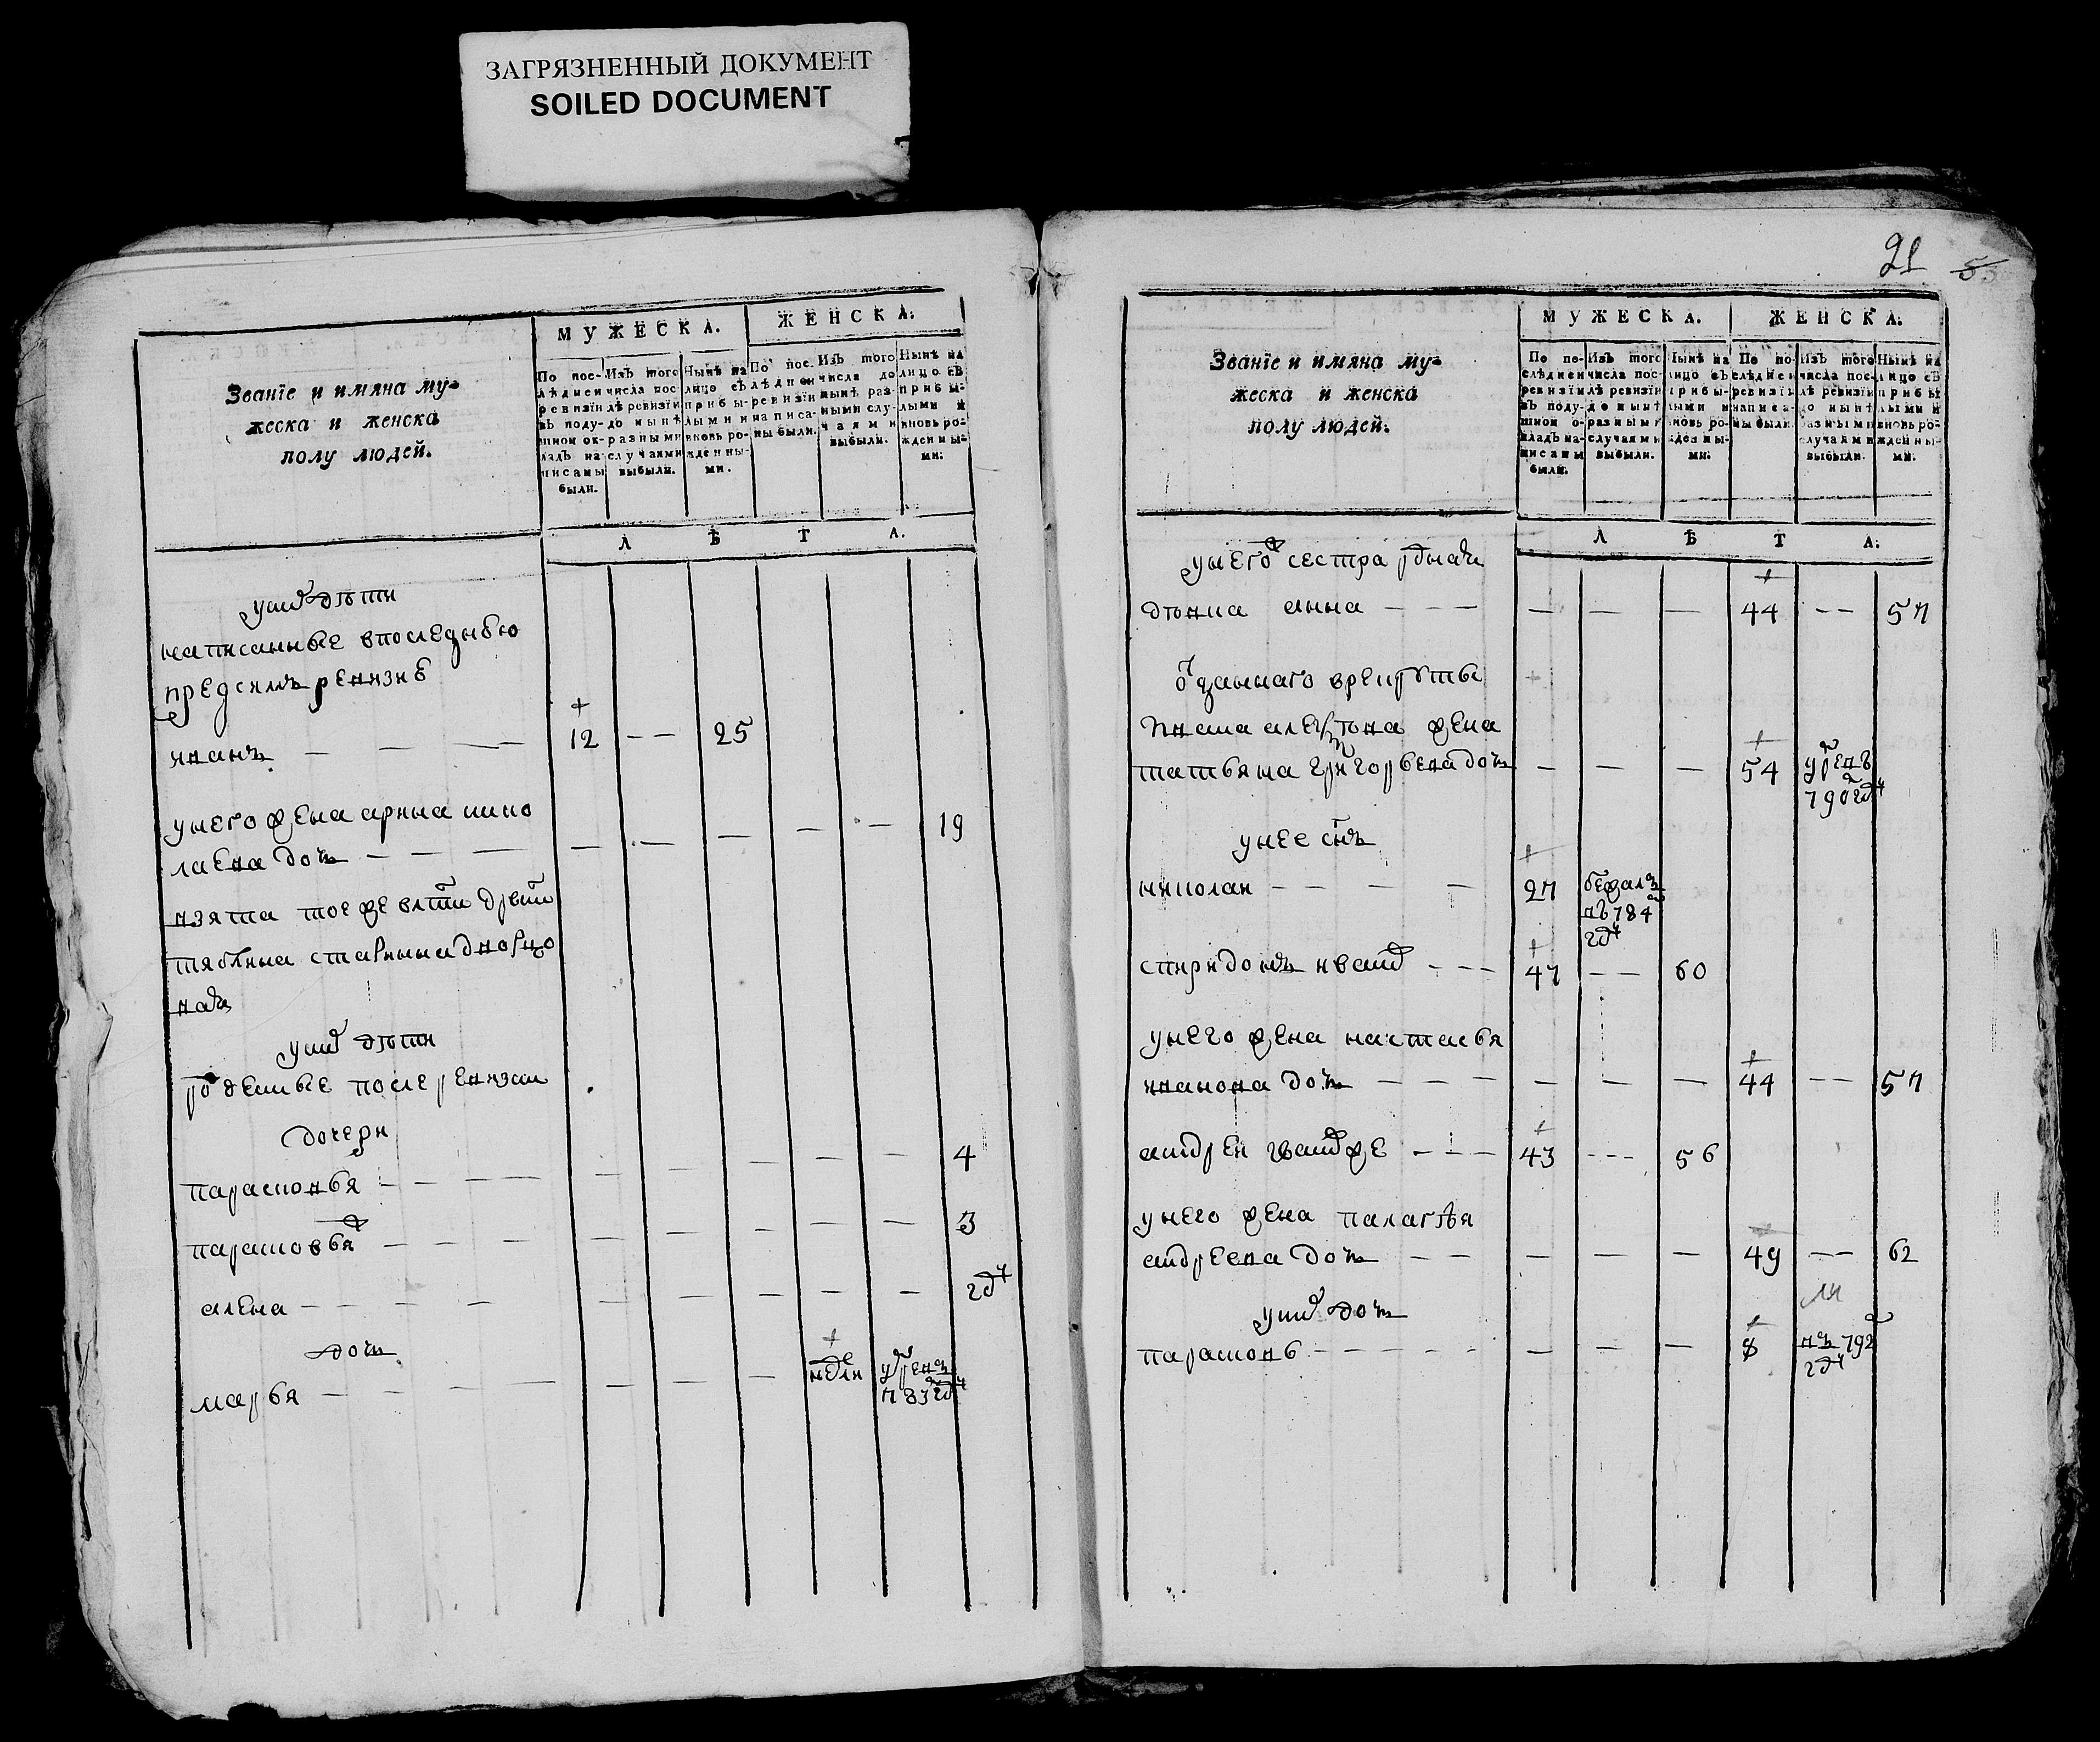 ЗАГРЯЗНЕННЫЙ ДОКУМЕНТ
SOILED DOCUMENT
Званїе и имяна му-
жеска и женска
полу людей.
МУЖЕСКА.
ЖЕНСКА.
По пос-
лѣдней
ревизїи
въ поду-
шной ок-
ладъ на-
писаны
были.
Изъ того
числа пос
лѣ ревизїи
до нынѣ
разными
случаями
выбыли.
Нынѣ на
лицо съ
прибы-
лыми и
вновь ро-
жденны-
ми.
По пос.
лѣдней
ревизїи
написа-
ны были.
Изъ того
числа до
нынѣ раз-
ными слу-
чаями
выбыли.
Нынѣ на
лицо съ
прибы-
лыми и
вновь ро-
жденны-
ми:
Л Ѣ Т А.
у них дѣти
написанные в последнюю
пред сим ревизию
иванъ — — — 12 — — 25
у него жена арина нико
лаева дочь — — — — — — — — 19
взята тое же
старинная дворцо
вая
у них дѣти
рожденные после ревизии
дочери
парасковья — — — — — — — — 4
парасковья ж — — — — — — — — 3
алена — — — — — — — — — году
дочь
марья — — — — — — — недели умре въ
783 году
21 5
Званїе и имяна му-
жеска и женска
полу людей.
МУЖЕСКА.
ЖЕНСКА.
По по-
слѣдней
ревизїи
въ поду-
шной о-
кладъ на-
писаны
были.
Изъ того
числа пос-
лѣ ревизїи
до нынѣ
разными
случаями
выбыли.
Нынѣ на
лицо съ
прибы-
лыми и
вновь ро-
жденны-
ми:
По по-
слѣдней
ревизїи
написа-
ны были.
Изъ того
числа пос-
лѣ ревизїи
до нынѣ
разными
случаями
выбыли.
Нынѣ на
лицо съ
прибы
лыми и
вновь ро-
жденны-
ми:
Л Ѣ Т А.
у него ж сестра
девка анна — — — — — — 44 — — 57
отданного в рекруты
жена
татьяна григорьева дочь — — — 54 умре въ
790 году
у нее сынъ
николаи — — — — 27 бежалъ
въ 784
году
спиридонъ иванов — — — 47 — — 60
у него жена настасья
иванова дочь — — — — — — 44 — — 57
андреи иванов же — — — 43 - - - 56
у него жена палагѣя
андреева дочь — — — — — 49 — — 62
у них дочь
парасковь — — — — — — — — 8 въ 792
году